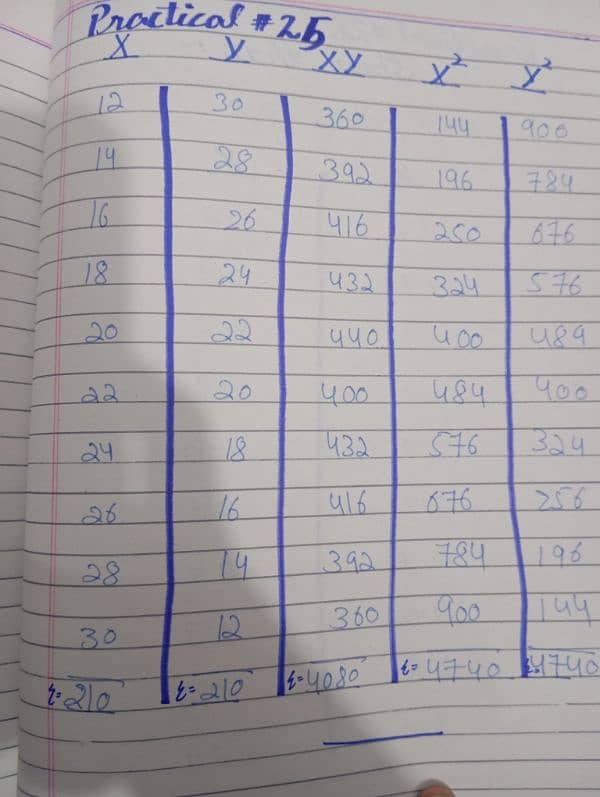 Practical #25
X Y XY X² Y²
12 30 360 144 900
14 28 392 196 784
16 26 416 250 676
18 24 432 324 576
20 22 440 400 484
22 20 400 484 400
24 18 432 576 324
26 16 416 676 256
28 14 392 784 196
30 12 360 900 144
Σ=210 Σ=210 Σ=4080 Σ=4740 Σ=4740